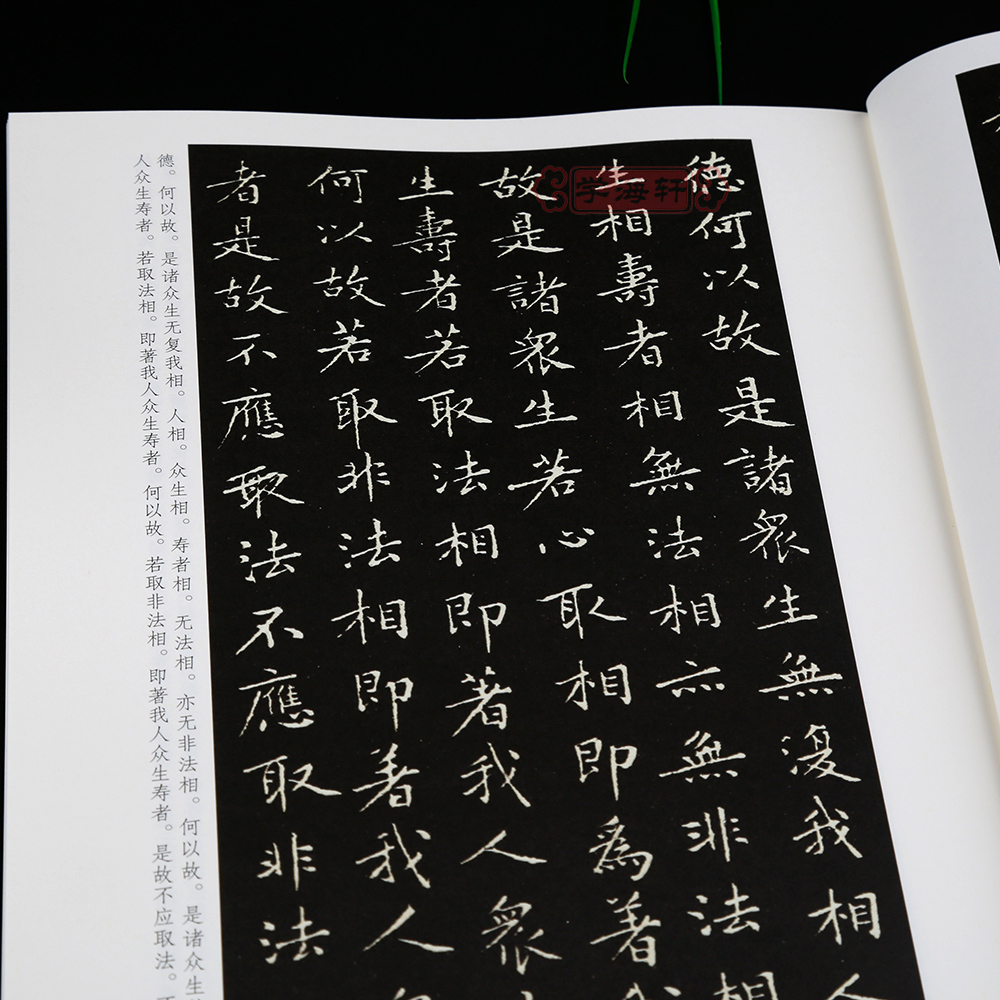 学海轩
德何以故是諸眾生無復我相人
生相壽者相無法相亦無非法相
故是諸眾生若心取相即為著我
生壽者若取法相即著我人眾
何以故若取非法相即著我人眾
者是故不應取法不應取非法
德。何以故。是诸众生无复我相。人相。众生相。寿者相。无法相。亦无非法相。何以故。是诸众生
人众生寿者。若取法相。即著我人众生寿者。何以故。若取非法相。即著我人众生寿者。是故不应取法。